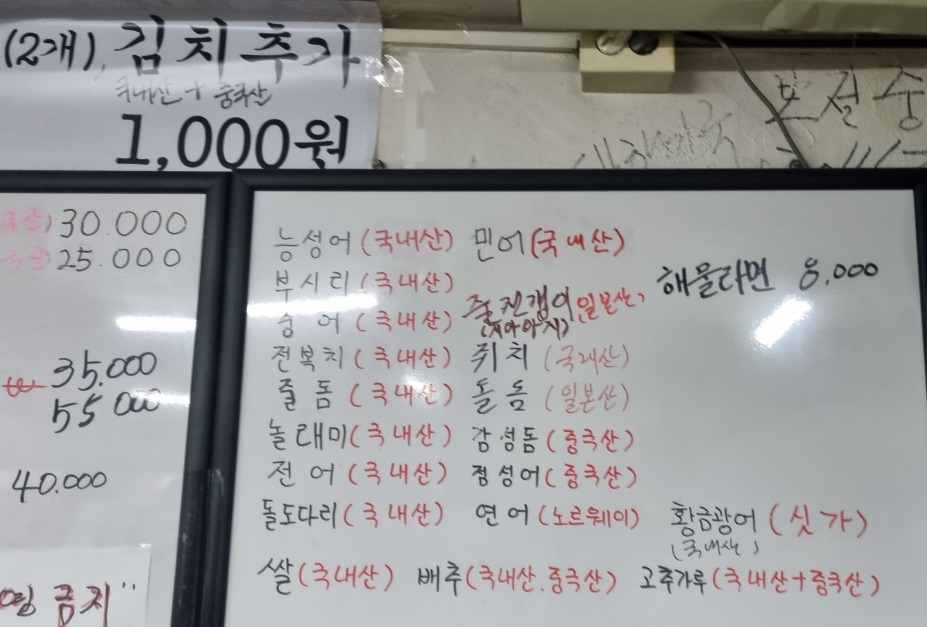 (2개), 김치추가
국내산 + 중국산
1,000원
30.000
25.000
35.000
55.000
40.000
금지"
능성어 (국내산) 민어 (국내산)
부시리 (국내산)
해물라면 8.000
숭어 (국내산) 줄전갱이 (일본산)
전복치 (국내산) 쥐치 (국내산)
줄돔 (국내산) 돌돔 (일본산)
놀래미 (국내산) 감성돔 (중국산)
전어 (국내산) 점성어 (중국산)
돌도다리 (국내산) 연어 (노르웨이) 황금광어 (싯가)
(국내산)
쌀 (국내산) 배추 (국내산.중국산) 고추가루 (국내산+중국산)